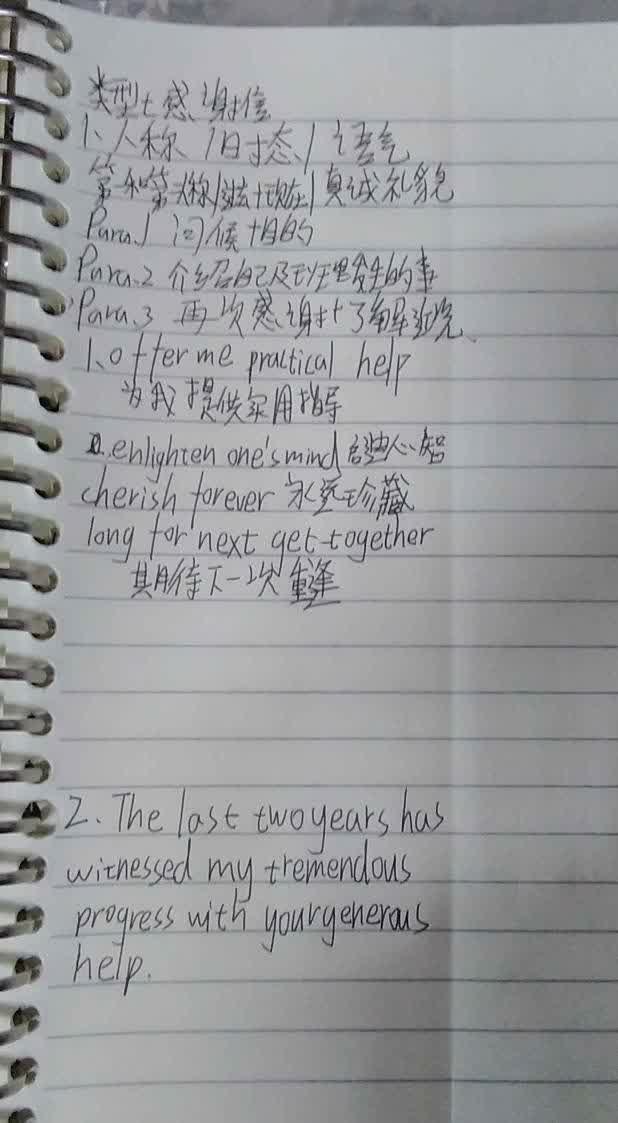 类型:感谢信
1、人称/时态/语气
第一和第二人称/过去+现在/真诚礼貌
Para.1 问候+目的
Para.2 介绍自己及班里发生的事
Para.3 再次感谢+了解近况、
1、offer me practical help
为我提供实用指导
2.enlighten one's mind 启迪心智
cherish forever 永远珍藏
long for next get-together
期待下一次重逢
2. The last two years has
witnessed my tremendous
progress with your generous
help.